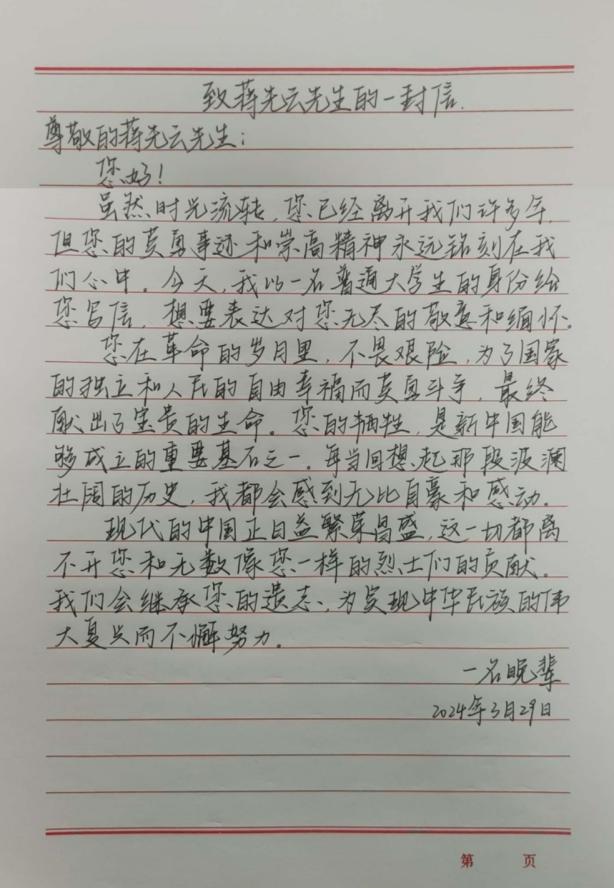 致蒋先云先生的一封信.
尊敬的蒋先云先生:
您好!
虽然时光流转,您已经离开我们许多年,
但您的英勇事迹和崇高精神永远铭刻在我
们心中。今天,我以一名普通大学生的身份给
您写信,想要表达对您无尽的敬意和缅怀。
您在革命的岁月里,不畏艰险,为了国家
的独立和人民的自由幸福而英勇斗争,最终
献出了宝贵的生命。您的牺牲,是新中国能
够成立的重要基石之一。每当回想起那段波澜
壮阔的历史,我都会感到无比自豪和感动。
现代的中国正日益繁荣昌盛,这一切都离
不开您和无数像您一样的烈士们的贡献。
我们会继承您的遗志,为实现中华民族的伟
大复兴而不懈努力。
一名晚辈
2024年3月29日
第 页